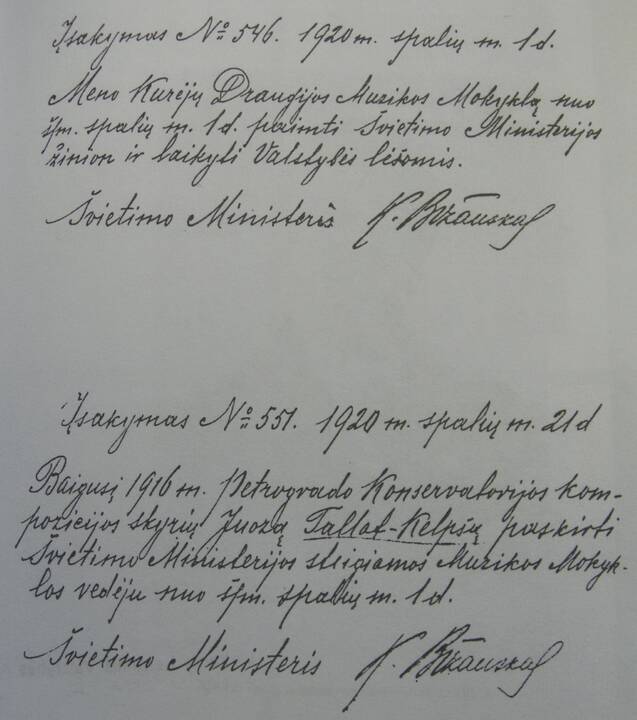 Įsakymas № 546. 1920 m. spalių m. 1 d.
Meno Kurėjų Draugijos Muzikos Mokyklą nuo
š/m. spalių m. 1 d. paimti Švietimo Ministerijos
žinion ir laikyti Valstybės lėšomis.
Švietimo Ministeris K. Bižauskas
Įsakymas № 551. 1920 m. spalių m. 21 d
Baigusį 1916 m. Petrogrado Konservatorijos kom-
pozicijos skyrių Juozą Tallat-Kelpšą paskirti
Švietimo Ministerijos steigiamos Muzikos Mokyk-
los vedėju nuo š/m. spalių m. 1 d.
Švietimo Ministeris K. Bižauskas